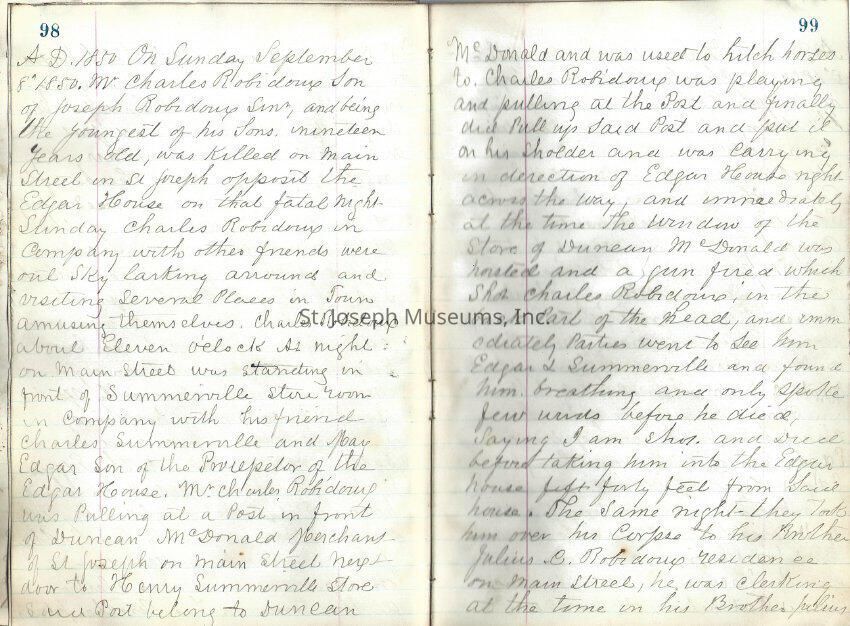 98
A.D. 1850 On Sunday September
8th 1850. Mr Charles Robidoux Son
of Joseph Robidoux Sinr, and being
the youngest of his Sons, nineteen
years old, was Killed on Main
Street in St Joseph opposit the
Edgar House on that fatal Night
Sunday Charles Robidoux in
Company with other friends were
out Sky larking arround and
visiting Several Places in Town
amusing themselves. Charles Robidoux
about Eleven oclock At night
on Main Street was standing in
front of Summerville Store room
in Company with his friend
Charles Summerville and
Edgar Son of the Proiepetor of the
Edgar House. Mr Charles Robidoux
was Pulling at a Post in front
of Duncan McDonald Merchant
of St Joseph on Main Street next
door to Henry Summerville Store
Said Post belong to Duncan
99
McDonald and was used to hitch horses
to. Charles Robidoux was playing
and pulling at the Post and finally
did Pull up Said Post and put it
on his Sholder and was Carrying
in derection of Edgar House right
across the way, and immediately
at the time the window of the
Store of Duncan McDonald was
hoisted and a gun fired which
Shot Charles Robidoux, in the
Part of the head, and imm
ediately Parties went to See him
Edgar & Summerville and found
him breathing and only Spoke
few words before he died,
Saying I am Shot. and Died
before taking him into the Edgar
house forty feet from Said
house. The Same night they took
him over his Corpse to his Brother
Julius C. Robidoux residence
on Main Street, he was clerking
at the time in his Brother Julius
St. Joseph Museums, Inc.